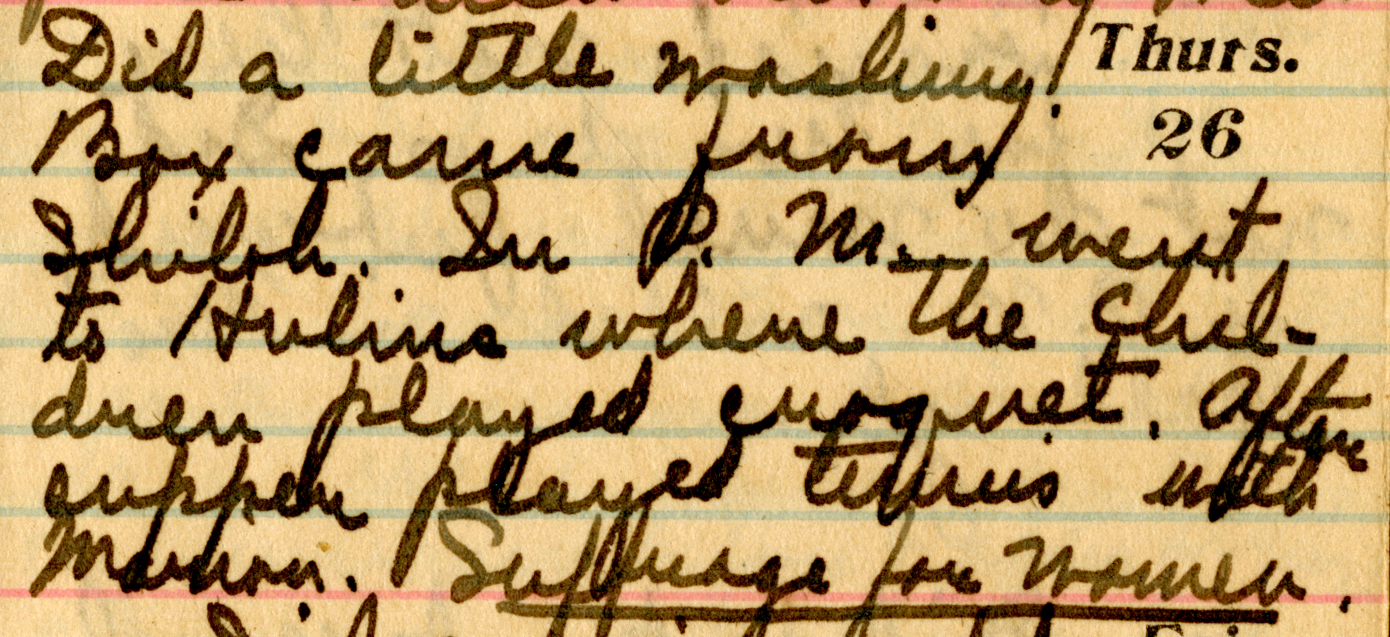 Did a little washing. Thurs.
Box came from 26
Shiloh. In P. M. went
to Hulins where the chil-
dren played croquet. After
supper played tennis with
Marion. Suffrage for women.